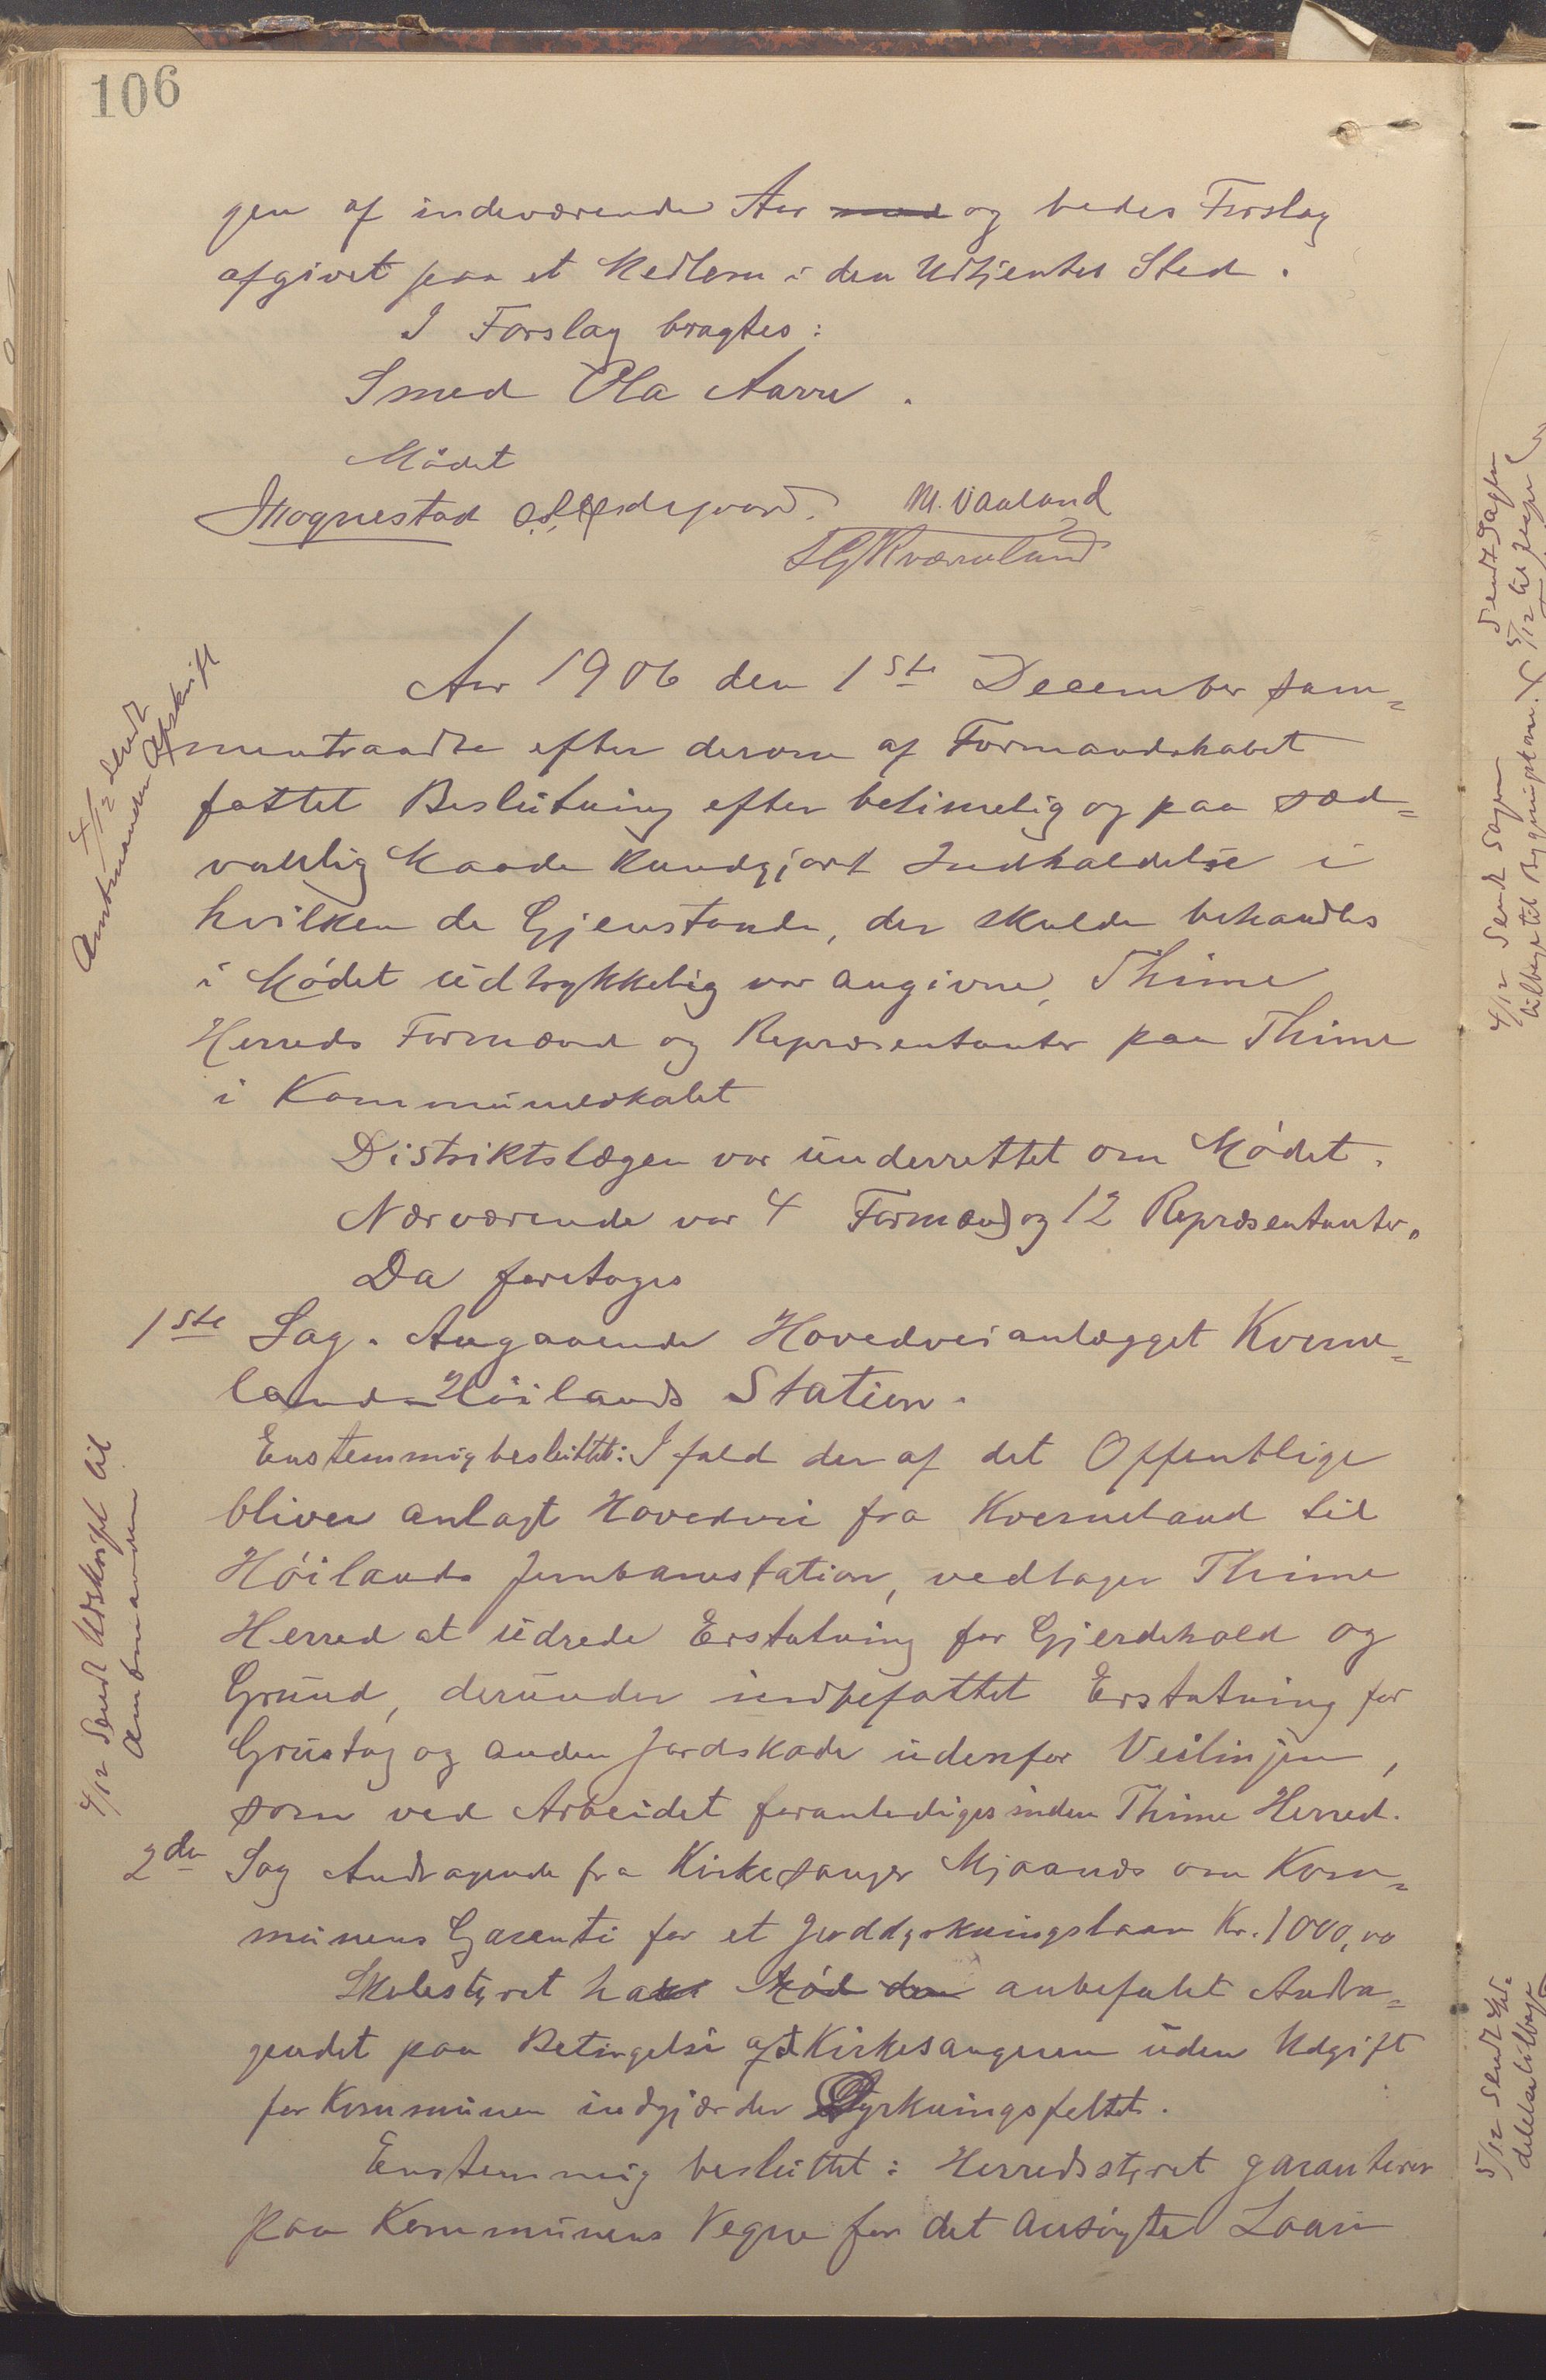 106
gen af indeværende Aar med og bedes Forslag
afgivet paa et Medlem i den Udtjentes Sted.
I Forslag bragtes:
Smed Ola Aarre.
Mödet
M. Vaaland
SGKverneland
Aar 1906 den 1ste December sam=
mentraadte efter derom af Formandskabet
fattet Beslutning efter betimelig og paa sæd=
vanlig Maade kundgjort Indkaldelse i
hvilken de Gjenstande, der skulde behandles
i Mödet udtrykkelig var angivne, Thime
Herreds Formænd og Repræsentanter paa Thime
i Kommunelokalet
Distriktslægen var underrettet om Mödet.
Nærværende var 4 Formænd og 12 Repræsentanter.
Da foretoges
1ste Sag. Angaaende Hovedveianlægget Kverne=
land-Höilands Station.
Enstemmig besluttet: Ifald der af det Offentlige
bliver anlagt Hovedvei fra Kverneland til
Höilands Jernbanestation, vedtager Thime
Herred at udrede Erstatning for Gjerdehold og
Grund, derunder indbefattet Erstatning for
Grustag og anden Jordskade udenfor Veilinjen,
som ved Arbeidet foranlediges inden Thime Herred.
2den Sag Andragende fra Kirkesanger Mjaanes om Kom=
munens Garanti for et Jorddyrkningslaan Kr. 1000,00
Skolestyret har Möd den anbefalet Andra=
gendet paa Betingelse af at Kirkesangeren uden Udgift
for Kommunen indgjærder Dyrkningsfeltet.
Enstemmig besluttet: Herredsstyret garanterer
paa Kommunens Vegne for det ansögte Laan
4/12 Sendt
Amtmanden Afskrift
4/12 Sendt Udskrift til
Amtmanden
Sendt Sagen
4/12 Sendt Sagen
5/12 Sendt